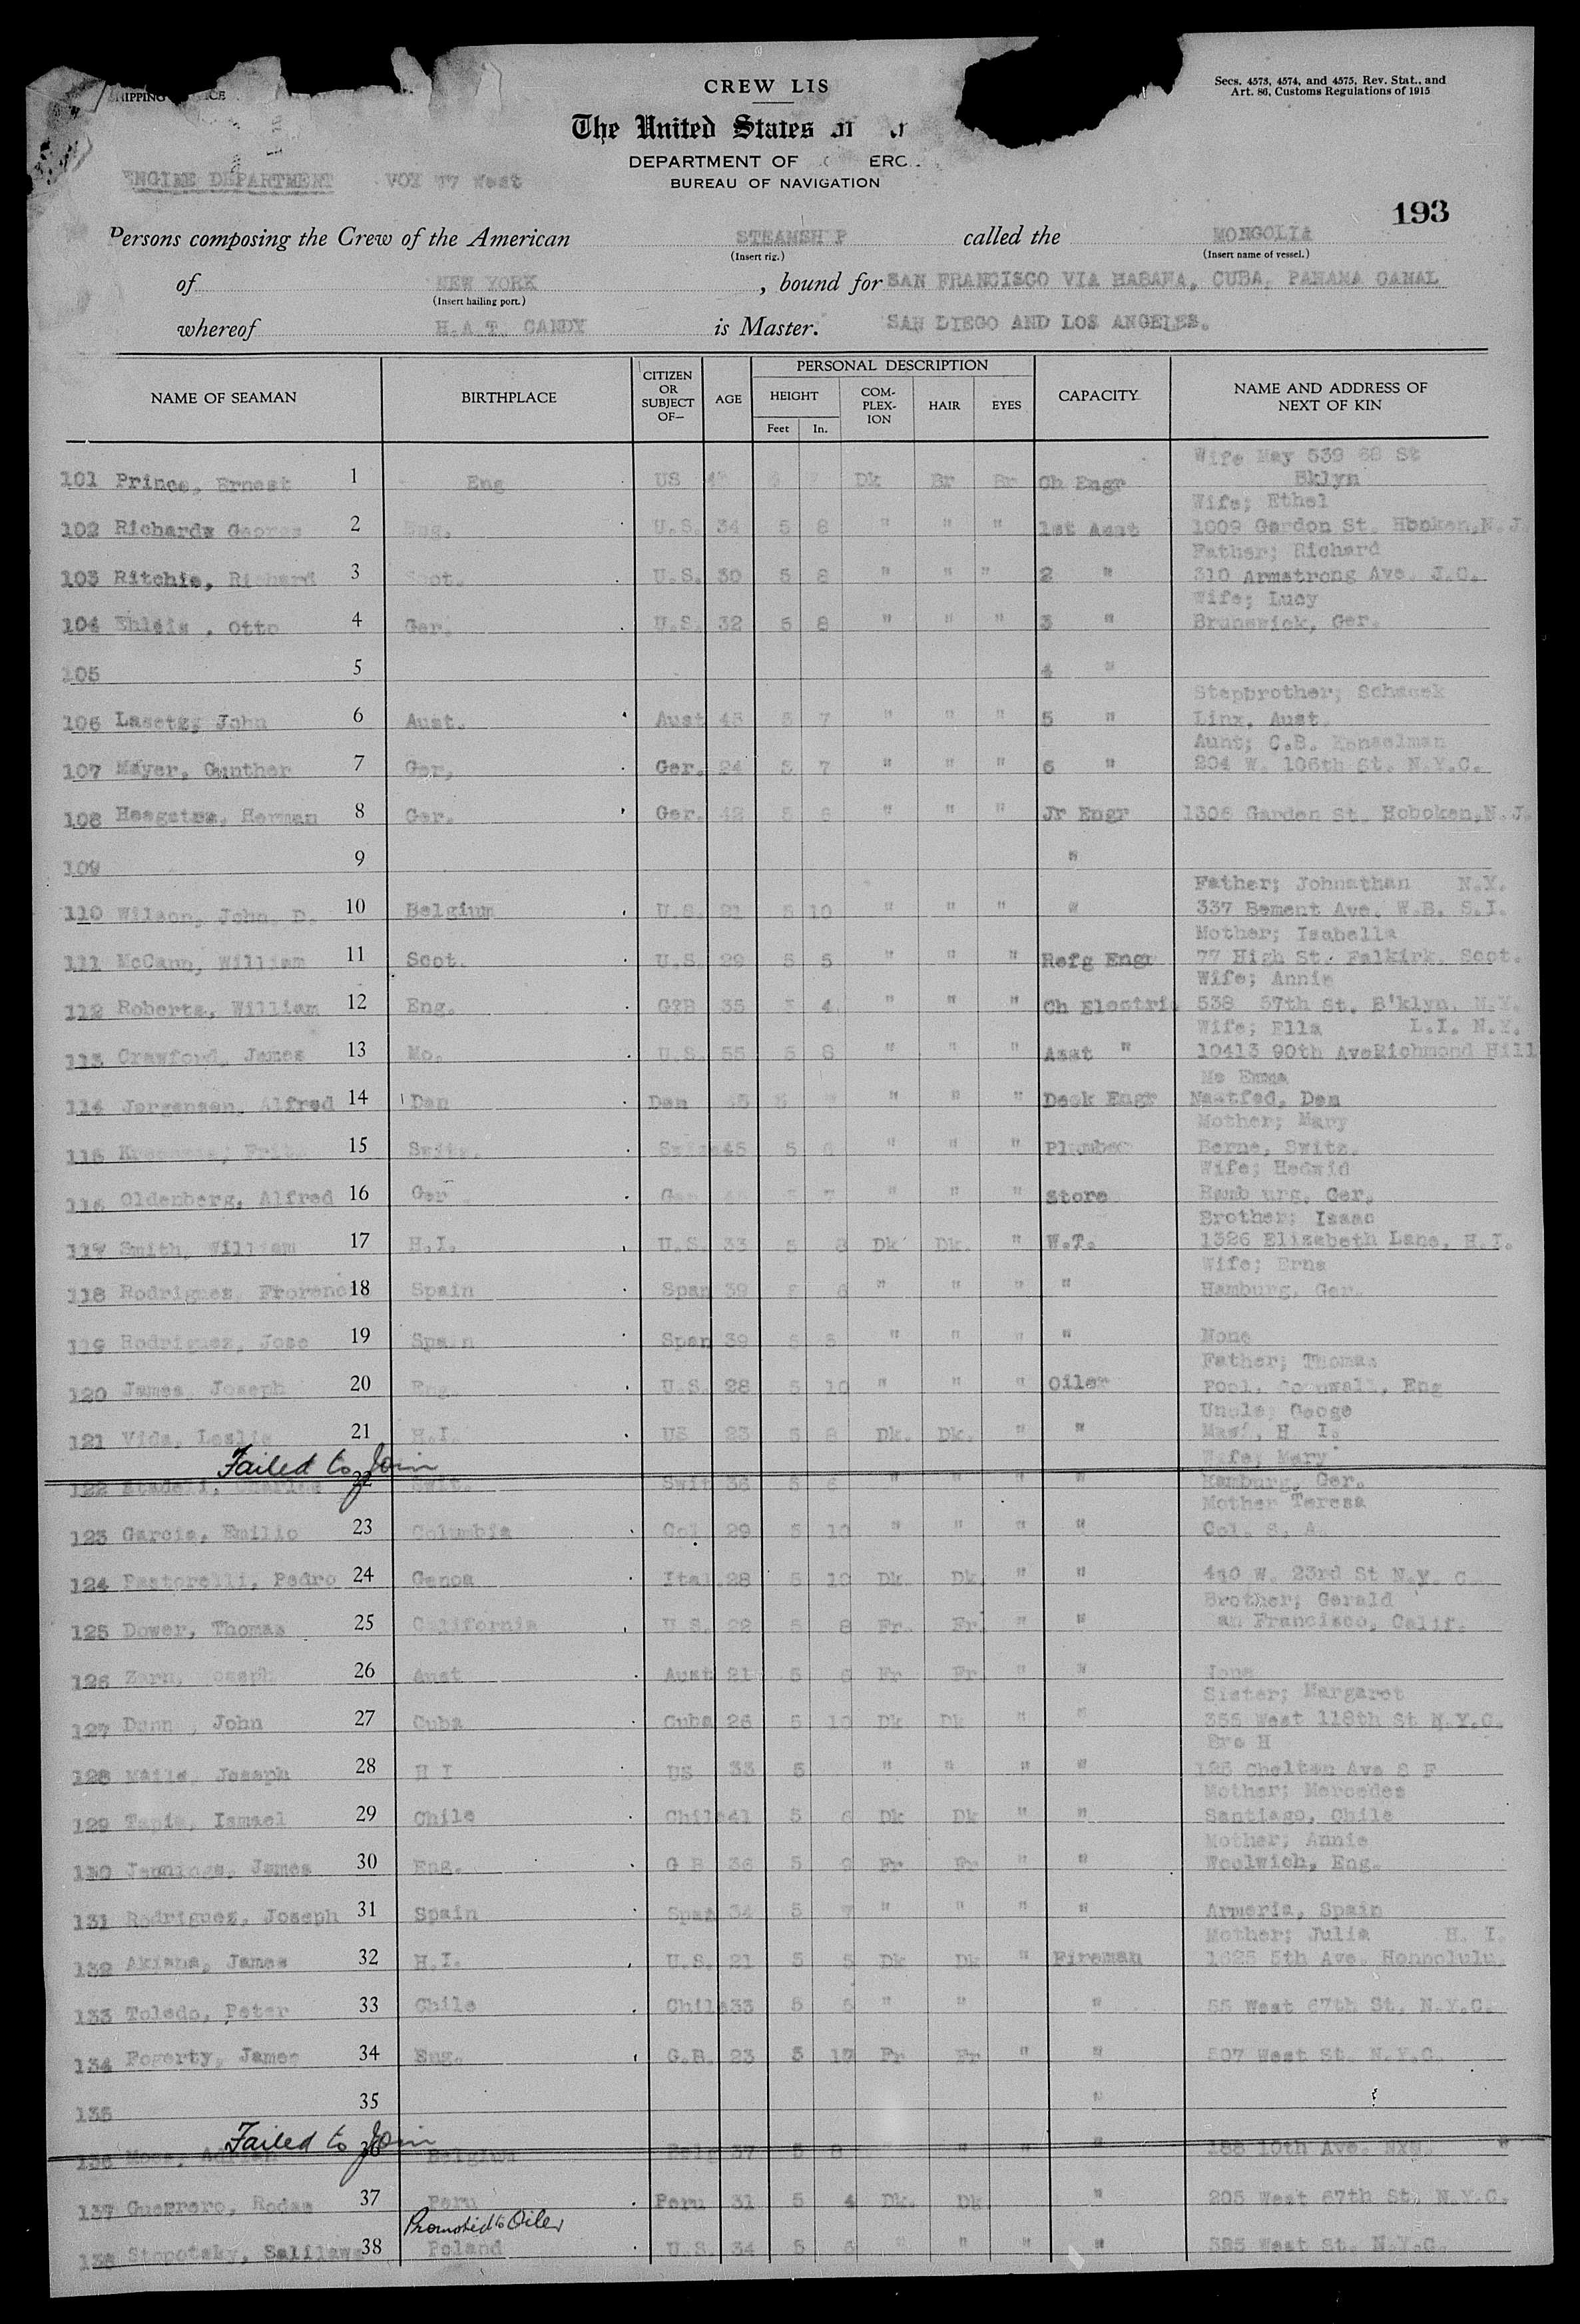 SHIPPING
CREW LIS
Secs. 4573, 4574, and 4575, Rev. Stat., and
Art. 86, Customs Regulations of 1915
The United States
DEPARTMENT OF ERC
BUREAU OF NAVIGATION
ENGINE DEPARTMENT VOY 77 West
193
Persons composing the Crew of the American STEAMSHIP called the MONGOLIA
(Insert rig.) (Insert name of vessel.)
of NEW YORK , bound for SAN FRANCISCO VIA HABANA, CUBA, PANAMA CANAL
(Insert hailing port.)
whereof H.A.T. CANDY is Master. SAN DIEGO AND LOS ANGELES.
NAME OF SEAMAN BIRTHPLACE CITIZEN OR SUBJECT OF— AGE PERSONAL DESCRIPTION CAPACITY NAME AND ADDRESS OF NEXT OF KIN
HEIGHT COM-PLEX-ION HAIR EYES
Feet In.
Wife May 539 68 St
101 Prince, Ernest 1 Eng US Dk Br Br Ch Engr Bklyn
Wife; Ethel
102 Richards George 2 Eng. U.S. 34 5 8 " " " 1st Asst 1009 Gardon St. Hboken,N.J.
Father; Richard
103 Ritchie, Richard 3 Scot. U.S. 30 5 8 " " " 2 " 310 Armstrong Ave. J.C.
Wife; Lucy
104 Otto 4 Ger. U.S. 32 5 8 " " " 3 " Brunswick, Ger.
105 5 4 "
Stepbrother;
106 Lasetz, John 6 Aust. Aust 45 5 7 " " " 5 " Linx, Aust.
Aunt; C.B.
107 Mayer, Gunther 7 Ger, Ger. 24 5 7 " " " 6 " 204 W. 106th St. N.Y.C.
108 Herman 8 Ger. Ger. 42 5 6 " " " Jr Engr 1306 Garden St. Hoboken,N.J.
109 9 "
Father; Johnathan N.Y.
110 Wilson, John. D. 10 Belgium U.S. 21 5 10 " " " " 337 Bement Ave. W.B. S.I.
Mother; Isabella
111 McCann, William 11 Scot. U.S. 29 5 5 " " " Refg Engr 77 High St. Falkirk. Scot.
Wife; Annie
112 Roberts, William 12 Eng. G?B 35 5 4 " " " Ch Electri 538 57th St. B'klyn. N.Y.
Wife; Ella L.I. N.Y.
113 Crawford, James 13 Mo. U.S. 55 5 8 " " " Asst " 10413 90th AveRichmond Hill
Mo Emma
114 Jorgensen, Alfred 14 Dan Dan " " " Deck Engr Den
Mother; Mary
115 15 Switz. 45 5 6 " " " Plumber Berne, Switz.
Wife; Hedwid
116 Oldenberg, Alfred 16 Ger 7 " " " Store Hamb urg. Ger.
Brother; Isaac
117 Smith, William 17 H.I. U.S. 33 5 8 Dk Dk. " W.T. 1326 Elizabeth Lane, H.I.
Wife; Erna
118 Rodriguez, 18 Spain Span 39 5 6 " " " Hamburg, Ger.
119 Rodriguez, Jose 19 Spain Span 39 5 5 " " " " None
Father; Thomas
120 James, Joseph 20 Eng. U.S. 28 5 10 " " " Oiler Pool, Cornwall, Eng
Uncle; Geoge
121 Vida, Leslie 21 H.I. US 23 5 8 Dk. Dk. " " H I.
Failed to Join Wife; Mary
122 Charles 22 Swit. Swit 36 5 6 " " " " Hamburg, Ger.
Mother Teresa
123 Garcia, Emilio 23 Columbia Col. 29 5 10 " " " " Col. S. A.
124 Pastorelli, Pedro 24 Genoa Ital. 28 5 10 Dk Dk " " W. 23rd St N.Y. C
Brother; Gerald
125 Dower, Thomas 25 California U S. 22 5 8 Fr. Fr. " an Francisco, Calif.
126 Zarn, Joseph 26 Aust Aust 21 5 6 Fr Fr " "
Sister; Margaret
127 Dunn, John 27 Cuba Cuba 26 5 10 Dk Dk " " 355 West 118th St N.Y.C.
Bro H
128 Maile, Joseph 28 H I US 33 5 " " " " Ave S F
Mother; Mercedes
129 Tapia, Ismael 29 Chile Chile41 5 6 Dk Dk " " Santiago, Chile
Mother; Annie
130 Jennings, James 30 Eng. G B 36 5 9 Fr Fr " " Woolwich, Eng.
131 Rodriguez, Joseph 31 Spain Span 34 5 7 " " " " Armeria, Spain
Mother; Julia H. I.
132 Akiana, James 32 H.I. U.S. 21 5 5 Dk Dk " Fireman 1625 5th Ave. Honnolulu.
133 Toledo, Peter 33 Chile Chile33 5 5 " " " 55 West 67th St. N.Y.C.
134 Fogerty, James 34 Eng. G.B. 23 5 Fr Fr " " 507 West St. N.Y.C.
135 35 "
Failed to Join
136 Moes, Adrian 36 Belgium Belg 37 5 8 " " " 188 10th Ave. "
137 Guerrero, Rodas 37 Peru Peru 31 5 4 Dk. Dk " 205 West 67th St. N.Y.C.
Promoted to Oiler
138 Stopotsky, 38 Poland U.S. 34 5 6 " " " " West St. N.Y.C.